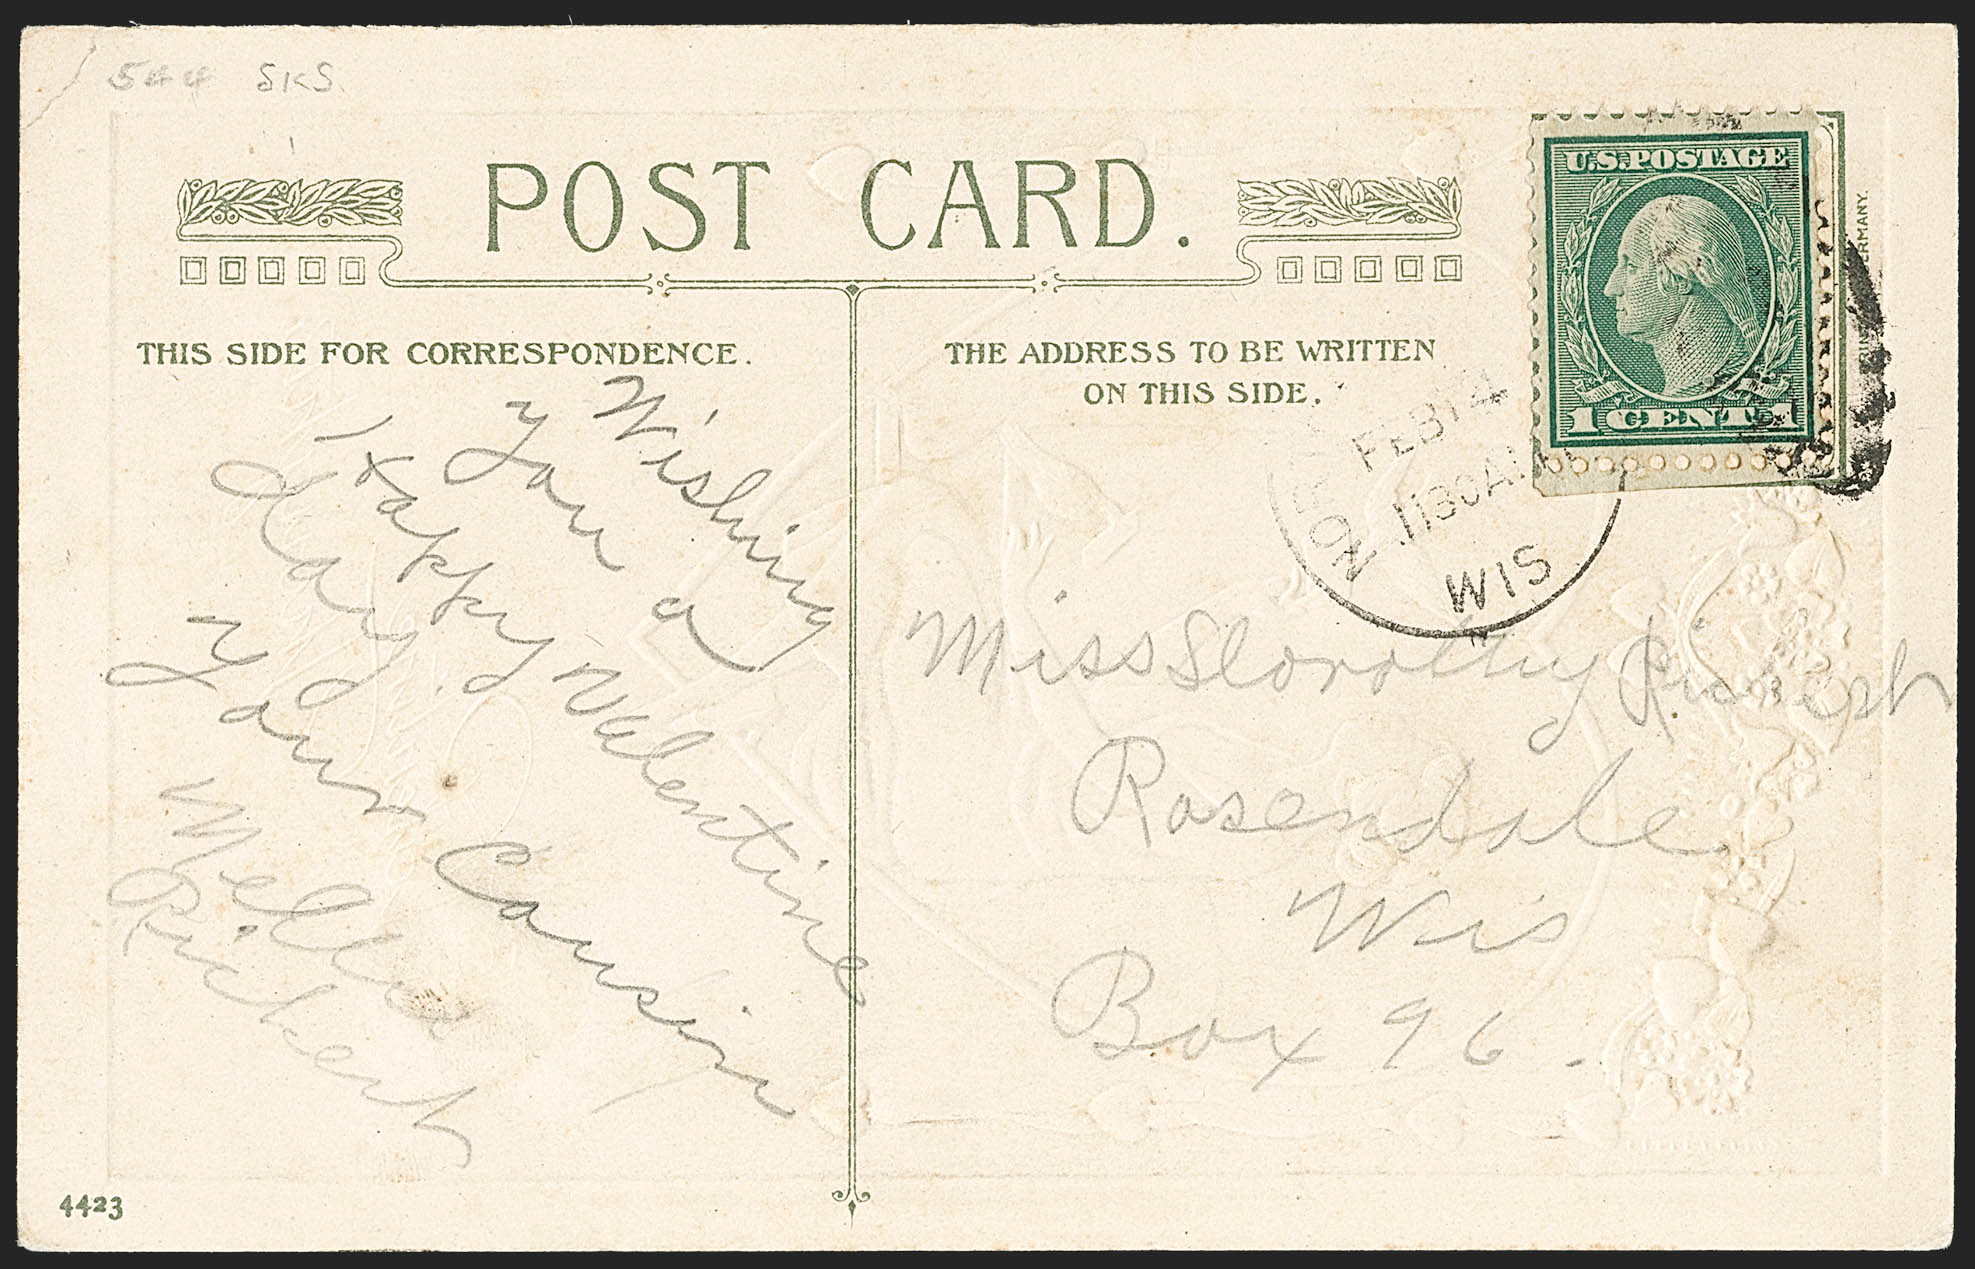 544 SKS.
POST CARD.
THIS SIDE FOR CORRESPONDENCE.
Wishing
you a
Happy Valentine
day.
Your Cousin
Mellie
Rickert
4423
THE ADDRESS TO BE WRITTEN
ON THIS SIDE.
U.S. POSTAGE
1 CENT 1
FEB 14
1130A
WIS
Miss Dorothy Rickert
Rosendale
Wis
Box 96.